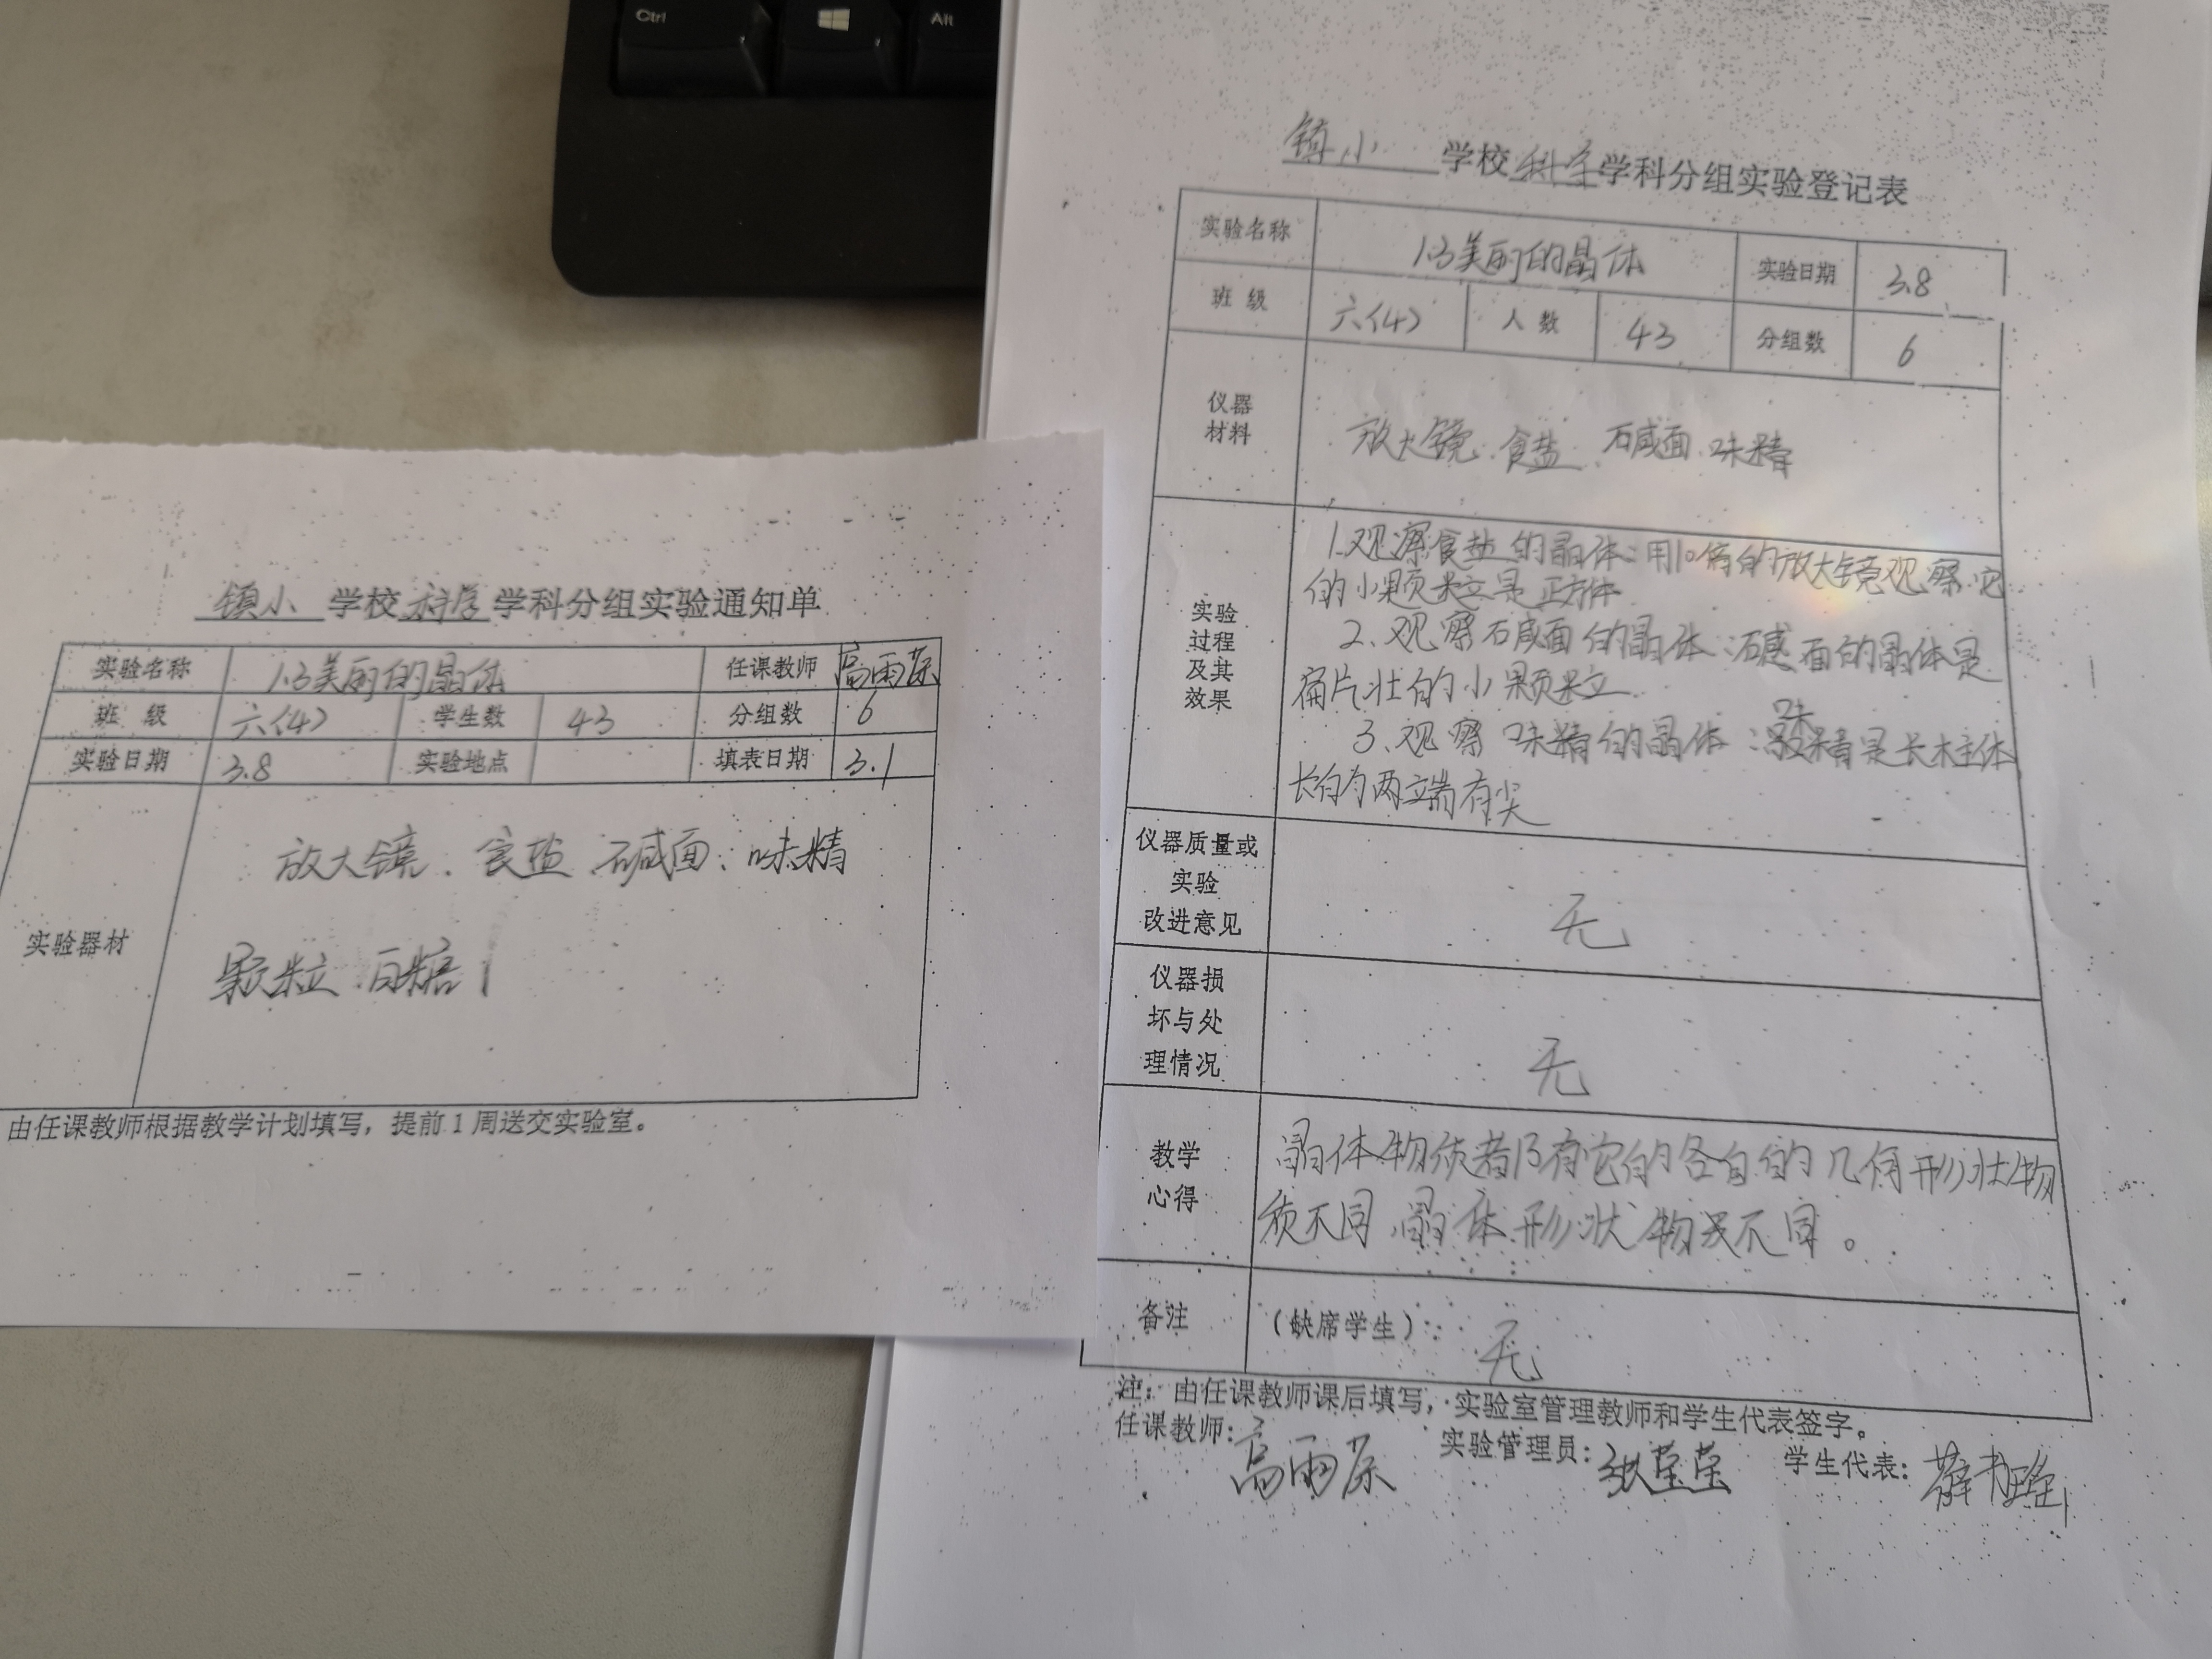 Ctrl
Alt
镇小 学校 科学 学科分组实验通知单
实验名称 1.3美丽的晶体 任课教师 高雨荼
班 级 六(4) 学生数 43 分组数 6
实验日期 3.8 实验地点 填表日期 3.1
实验器材
放大镜、食盐、碱面、味精
颗粒 白糖
由任课教师根据教学计划填写，提前1周送交实验室。
镇小 学校 科学 学科分组实验登记表
实验名称 1.3美丽的晶体 实验日期 3.8
班 级 六(4) 人 数 43 分组数 6
仪器
材料
放大镜、食盐、碱面、味精
实验
过程
及其
效果
1.观察食盐的晶体:用10倍的放大镜观察它
的小颗粒是正方体
2、观察碱面的晶体:碱面的晶体是
扁片壮的小颗粒
3、观察味精的晶体:味精是长柱体
长的两端有尖
仪器质量或
实验
改进意见
无
仪器损
坏与处
理情况
无
教学
心得
晶体物质都有它的各自的几何形状物
质不同,晶体形状 不同。
备注 (缺席学生): 无
注：由任课教师课后填写，实验室管理教师和学生代表签字。
任课教师: 高雨荼 实验管理员: 张莹莹 学生代表: 薛